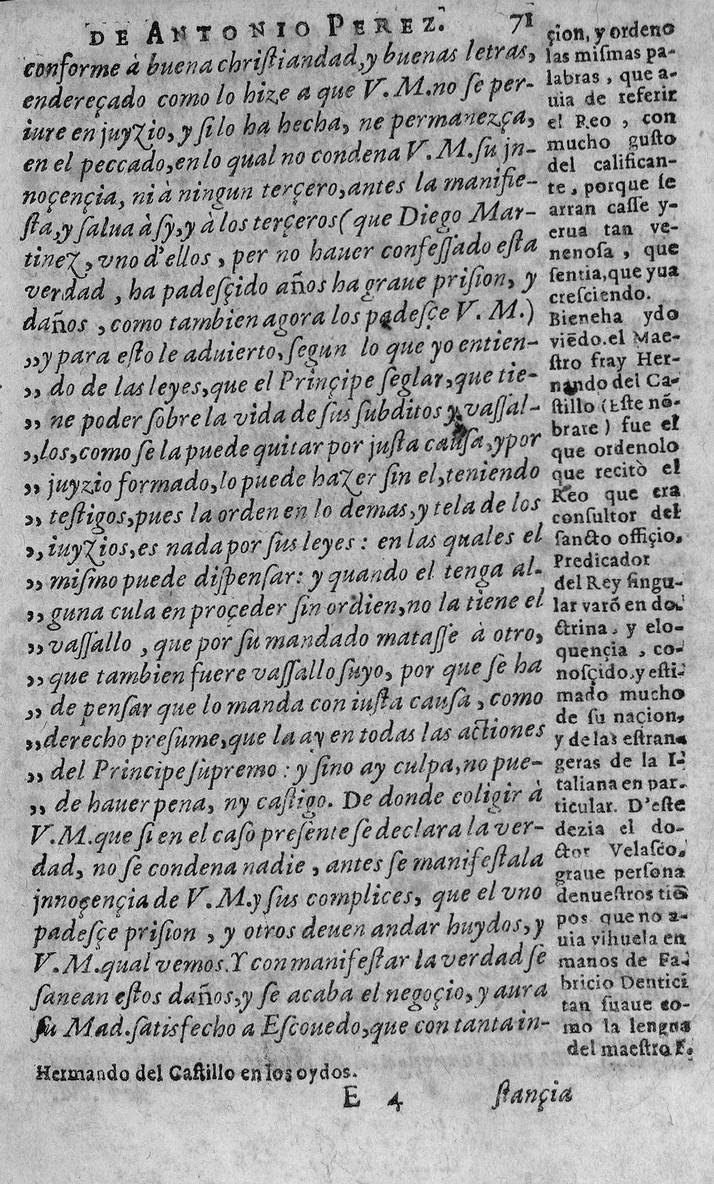 DE ANTONIO PEREZ. 71
conforme à buena chriſtiandad,y buenas letras,
endereçado como lo hize a que V.M.no ſe per-
iure en juyzio,y ſi lo ha hecha, ne permanezça,
en el peccado,en lo qual no condena V.M.ſu jn-
noçençia, ni à ningun terçero,antes la manifie-
ſta,y ſalua à ſy,y à los terçeros( que Diego Mar-
tinez, vno d'ellos, per no hauer confeſſado eſta
verdad , ha padeſçido años ha graue priſion, y
daños ,como tambien agora los padeſçe V. M.)
,,y para eſto le aduierto,ſegun lo que yo entien-
,, do de las leyes,que el Prinçipe ſeglar,que tie-
,, ne poder ſobre la vida de ſus ſubditos y vaſſal-
,,los,como ſe la puede quitar por juſta cauſa,ypor
,, juyzio formado,lo puede hazer ſin el,teniendo
,, teſtigos,pues la orden en lo demas,y tela de los
,, iuyzios,es nada por ſus leyes : en las quales el
,, miſmo puede diſpenſar: y quando el tenga al-
,, guna cula en proçeder ſin ordien,no la tiene el
,, vaſſallo , que por ſu mandado mataſſe à otro,
,, que tambien fuere vaſſallo ſuyo, por que ſe ha
,, de penſar que lo manda con iuſta cauſa , como
,,derecho preſume,que la ay en todas las actiones
,, del Principe ſupremo : y ſino ay culpa,no pue-
,, de hauer pena, ny caſtigo. De donde coligir à
V.M.que ſi en el caſo preſente ſe declara la ver-
dad, no ſe condena nadie , antes ſe manifeſtala
jnnoçençia de V.M.y ſus complices, que el vno
padeſçe priſion , y otros deuen andar huydos,y
V.M.qual vemos.Y con manifeſtar la verdad ſe
ſanean eſtos daños,y ſe acaba el negoçio,y aura
ſu Mad.ſatisfecho a Eſcouedo,que con tanta in-
çion, y ordeno
las miſmas pa-
labras , que a-
uia de referir
el Reo , con
mucho guſto
del califican-
te , porque ſe
arran caſſe y-
erua tan ve-
nenoſa , que
ſentia,que yua
creſciendo.
Bieneha ydo
viẽdo.el Mae-
ſtro fray Her-
nando del Ca-
ſtillo (Eſte nõ-
brare ) fue el
que ordenolo
que recitò el
Reo que era
conſultor del
ſancto offiçio,
Predicador
del Rey ſingu-
lar varõ en do-
ctrina, y elo-
quençia , co-
noſçido,y eſti-
mado mucho
de ſu nacion,
y de las eſtran-
geras de la I-
taliana en par-
ticular. D'eſte
dezia el do-
ctor Velaſco,
graue perſona
denueſtros tiẽ
pos que no a-
uia vihuela en
manos de Fa-
bricio Dentici
tan ſuaue co-
mo la lengua
del maeſtro F.
Hermando del Caſtillo en los oydos.
E 4 ſtançia